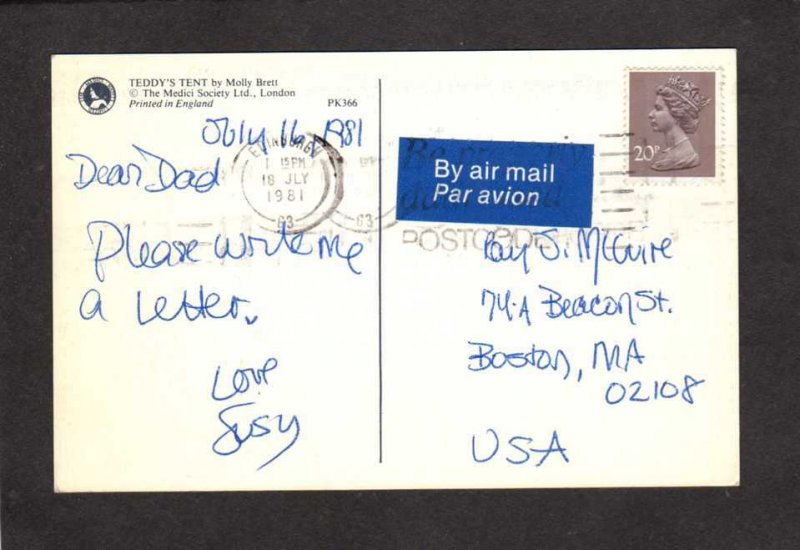 TEDDY'S TENT by Molly Brett
© The Medici Society Ltd., London
Printed in England
PK366
July 16 1981
Dear Dad
Please write me
a letter.
Love
Susy
EDINBURGH
15PM
18 JLY
1981
63
63
By air mail
Par avion
POSTCODE
20P
S. McGuire
74A Beacon St.
Boston, MA
02108
USA